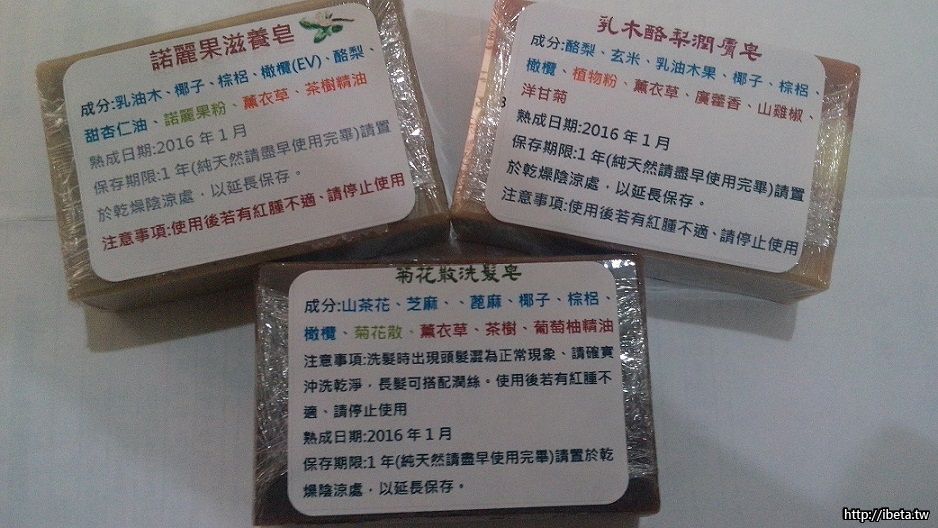 諾麗果滋養皂
成分:乳油木、椰子、棕梠、橄欖(EV)、酪梨、
甜杏仁油、諾麗果粉、薰衣草、茶樹精油
熟成日期:2016 年 1 月
保存期限:1 年(純天然請盡早使用完畢)請置
於乾燥陰涼處，以延長保存。
注意事項:使用後若有紅腫不適、請停止使用
乳木酪梨潤膚皂
成分:酪梨、玄米、乳油木果、椰子、棕梠、
橄欖、植物粉、薰衣草、廣藿香、山雞椒、
洋甘菊
熟成日期:2016 年 1 月
保存期限:1 年(純天然請盡早使用完畢)請置
於乾燥陰涼處，以延長保存。
注意事項:使用後若有紅腫不適、請停止使用
菊花散洗髮皂
成分:山茶花、芝麻、、蓖麻、椰子、棕梠、
橄欖、菊花散、薰衣草、茶樹、葡萄柚精油
注意事項:洗髮時出現頭髮澀為正常現象、請確實
沖洗乾淨，長髮可搭配潤絲。使用後若有紅腫不
適、請停止使用
熟成日期:2016 年 1 月
保存期限:1 年(純天然請盡早使用完畢)請置於乾
燥陰涼處，以延長保存。
http://ibeta.tw